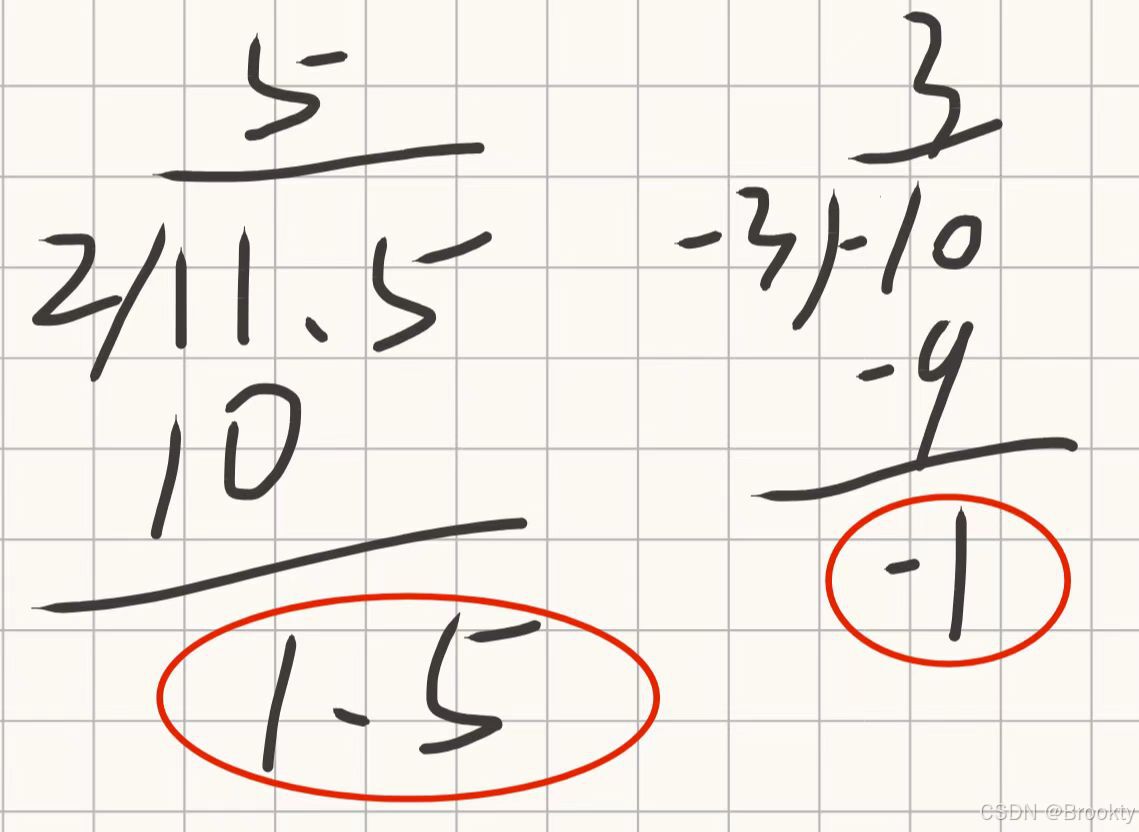 5
2/11.5
10
1.5
3
-3)-10
-9
-1
CSDN @Brookty